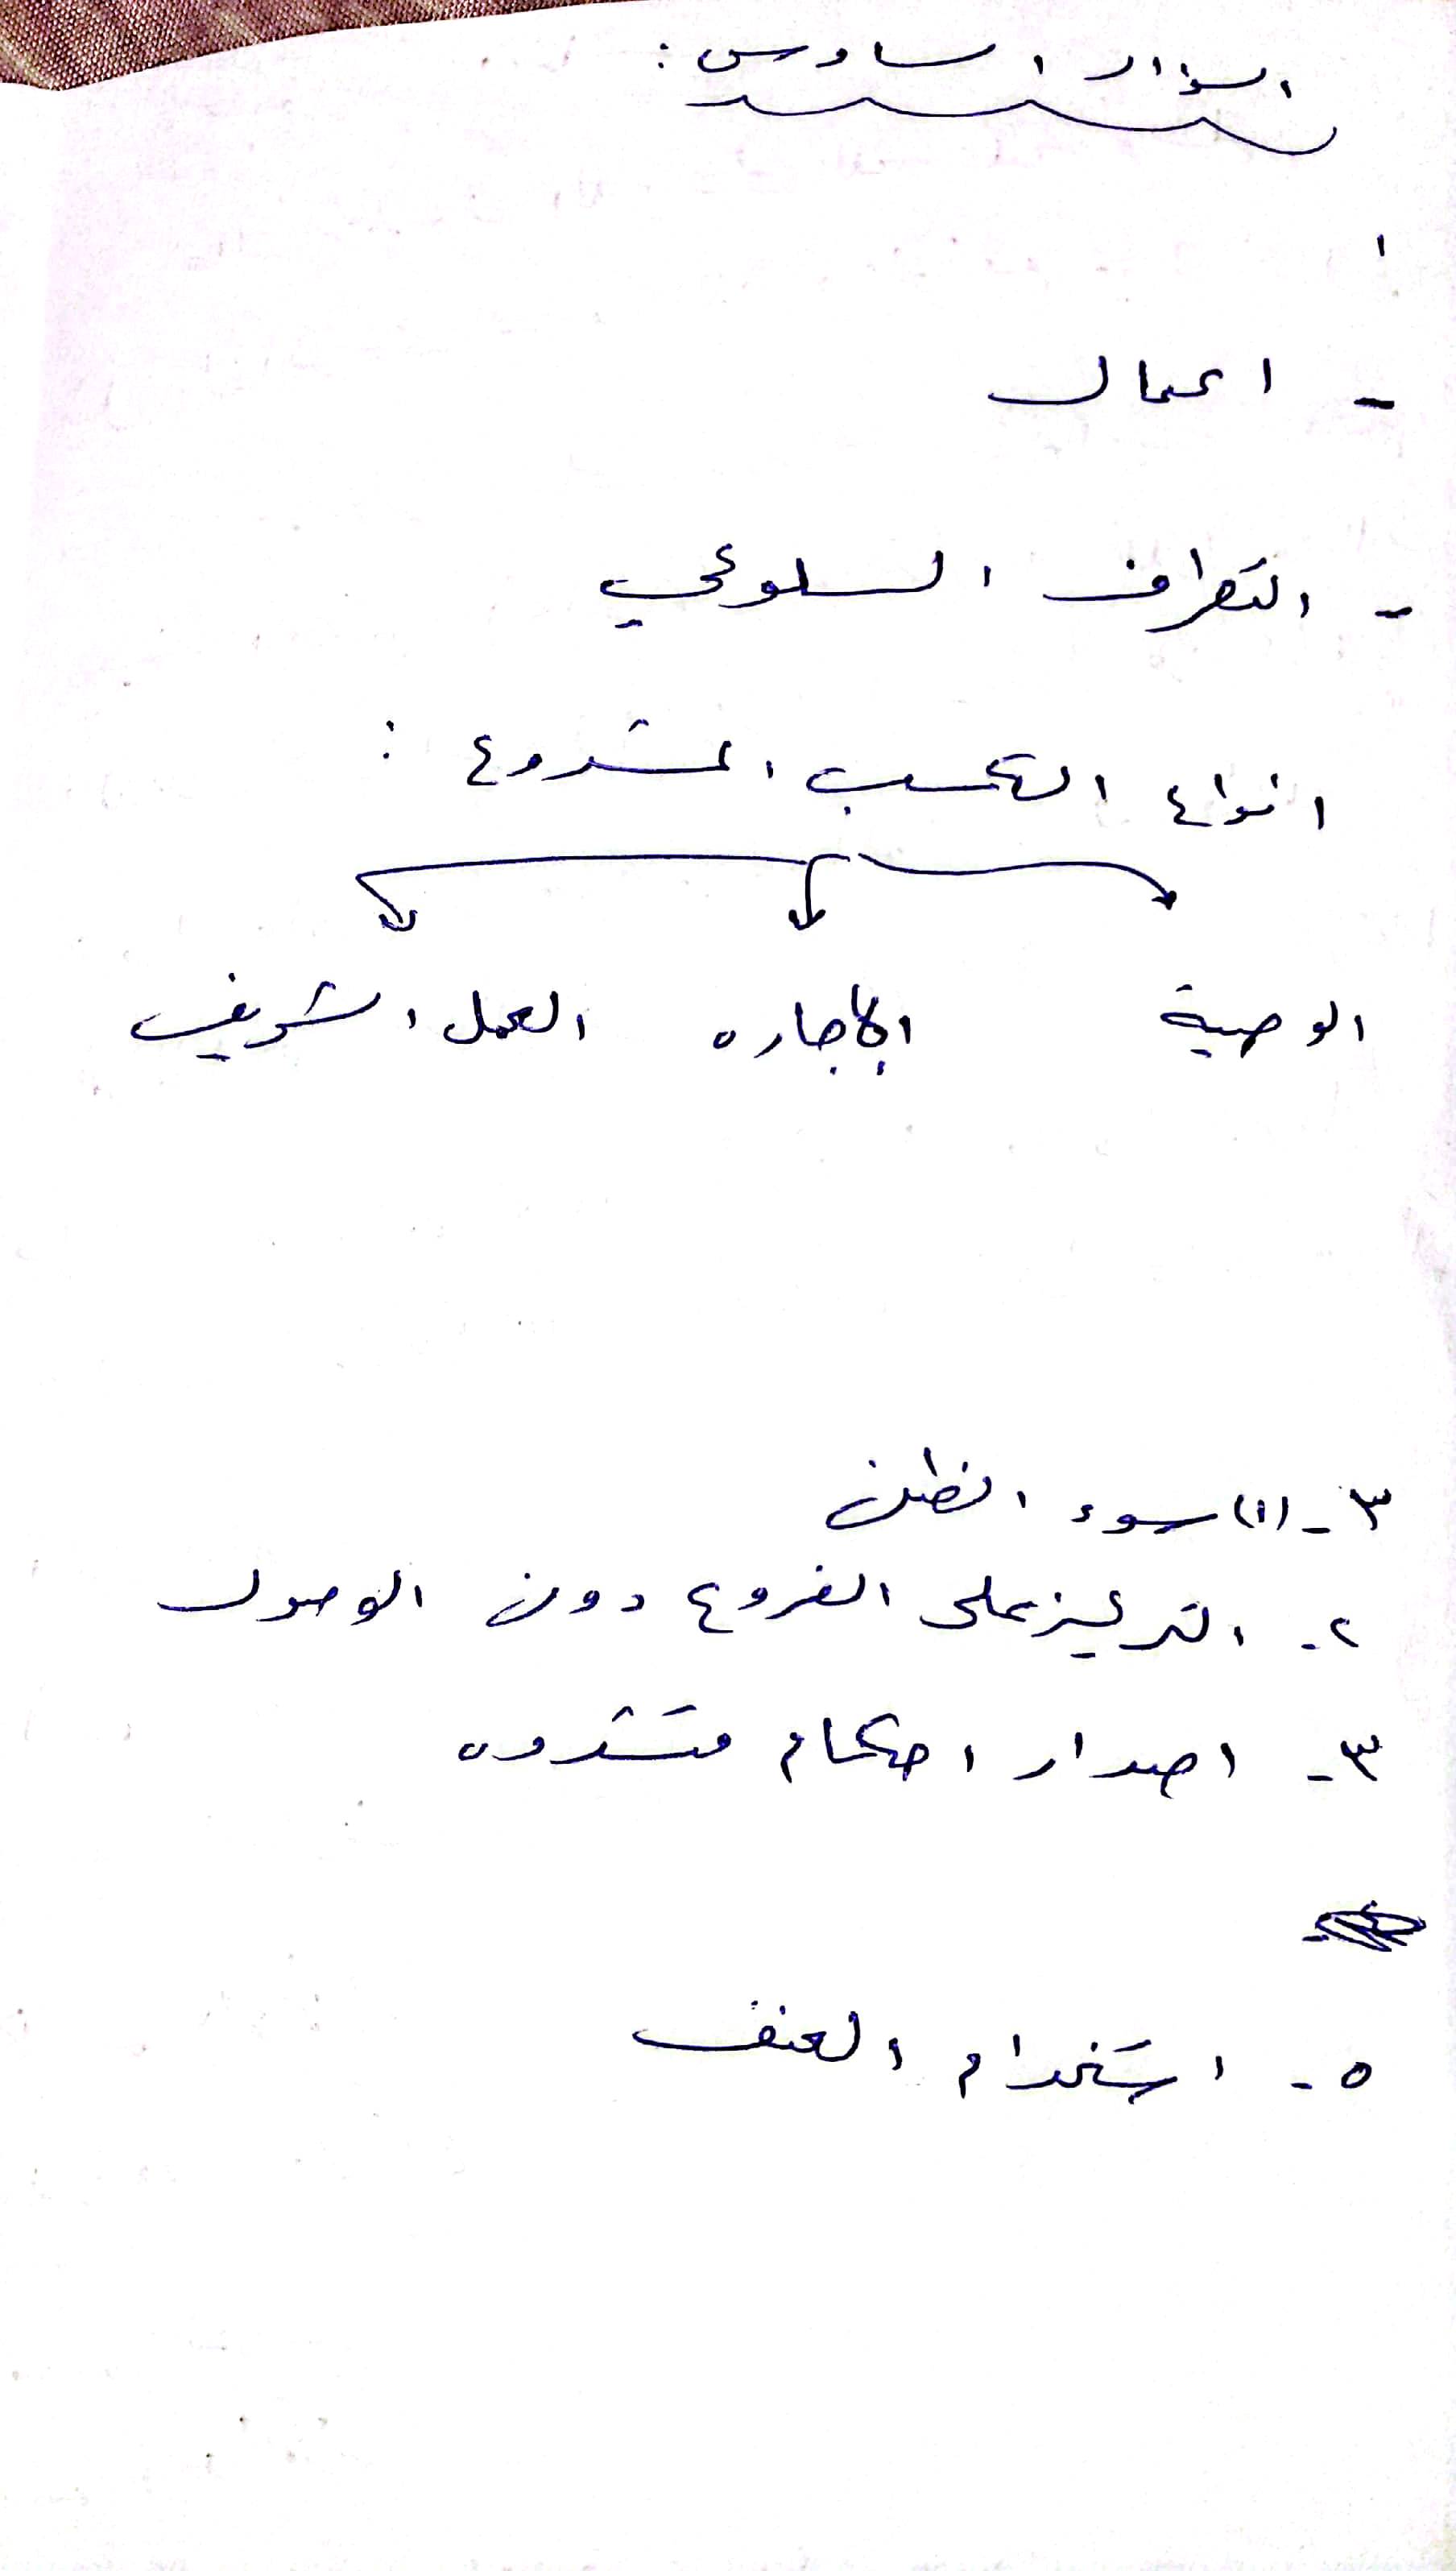 السؤال السادس :
١
- اعمال
- التطرف السلوكي
انواع الكسب المشروع :
الوصية الاجاره العمل الشريف
٣ - (١) سوء الظن
٢ - التركيز على الفروع دون الوصول
٣ - اصدار احكام متشدده
٥ - استخدام العنف